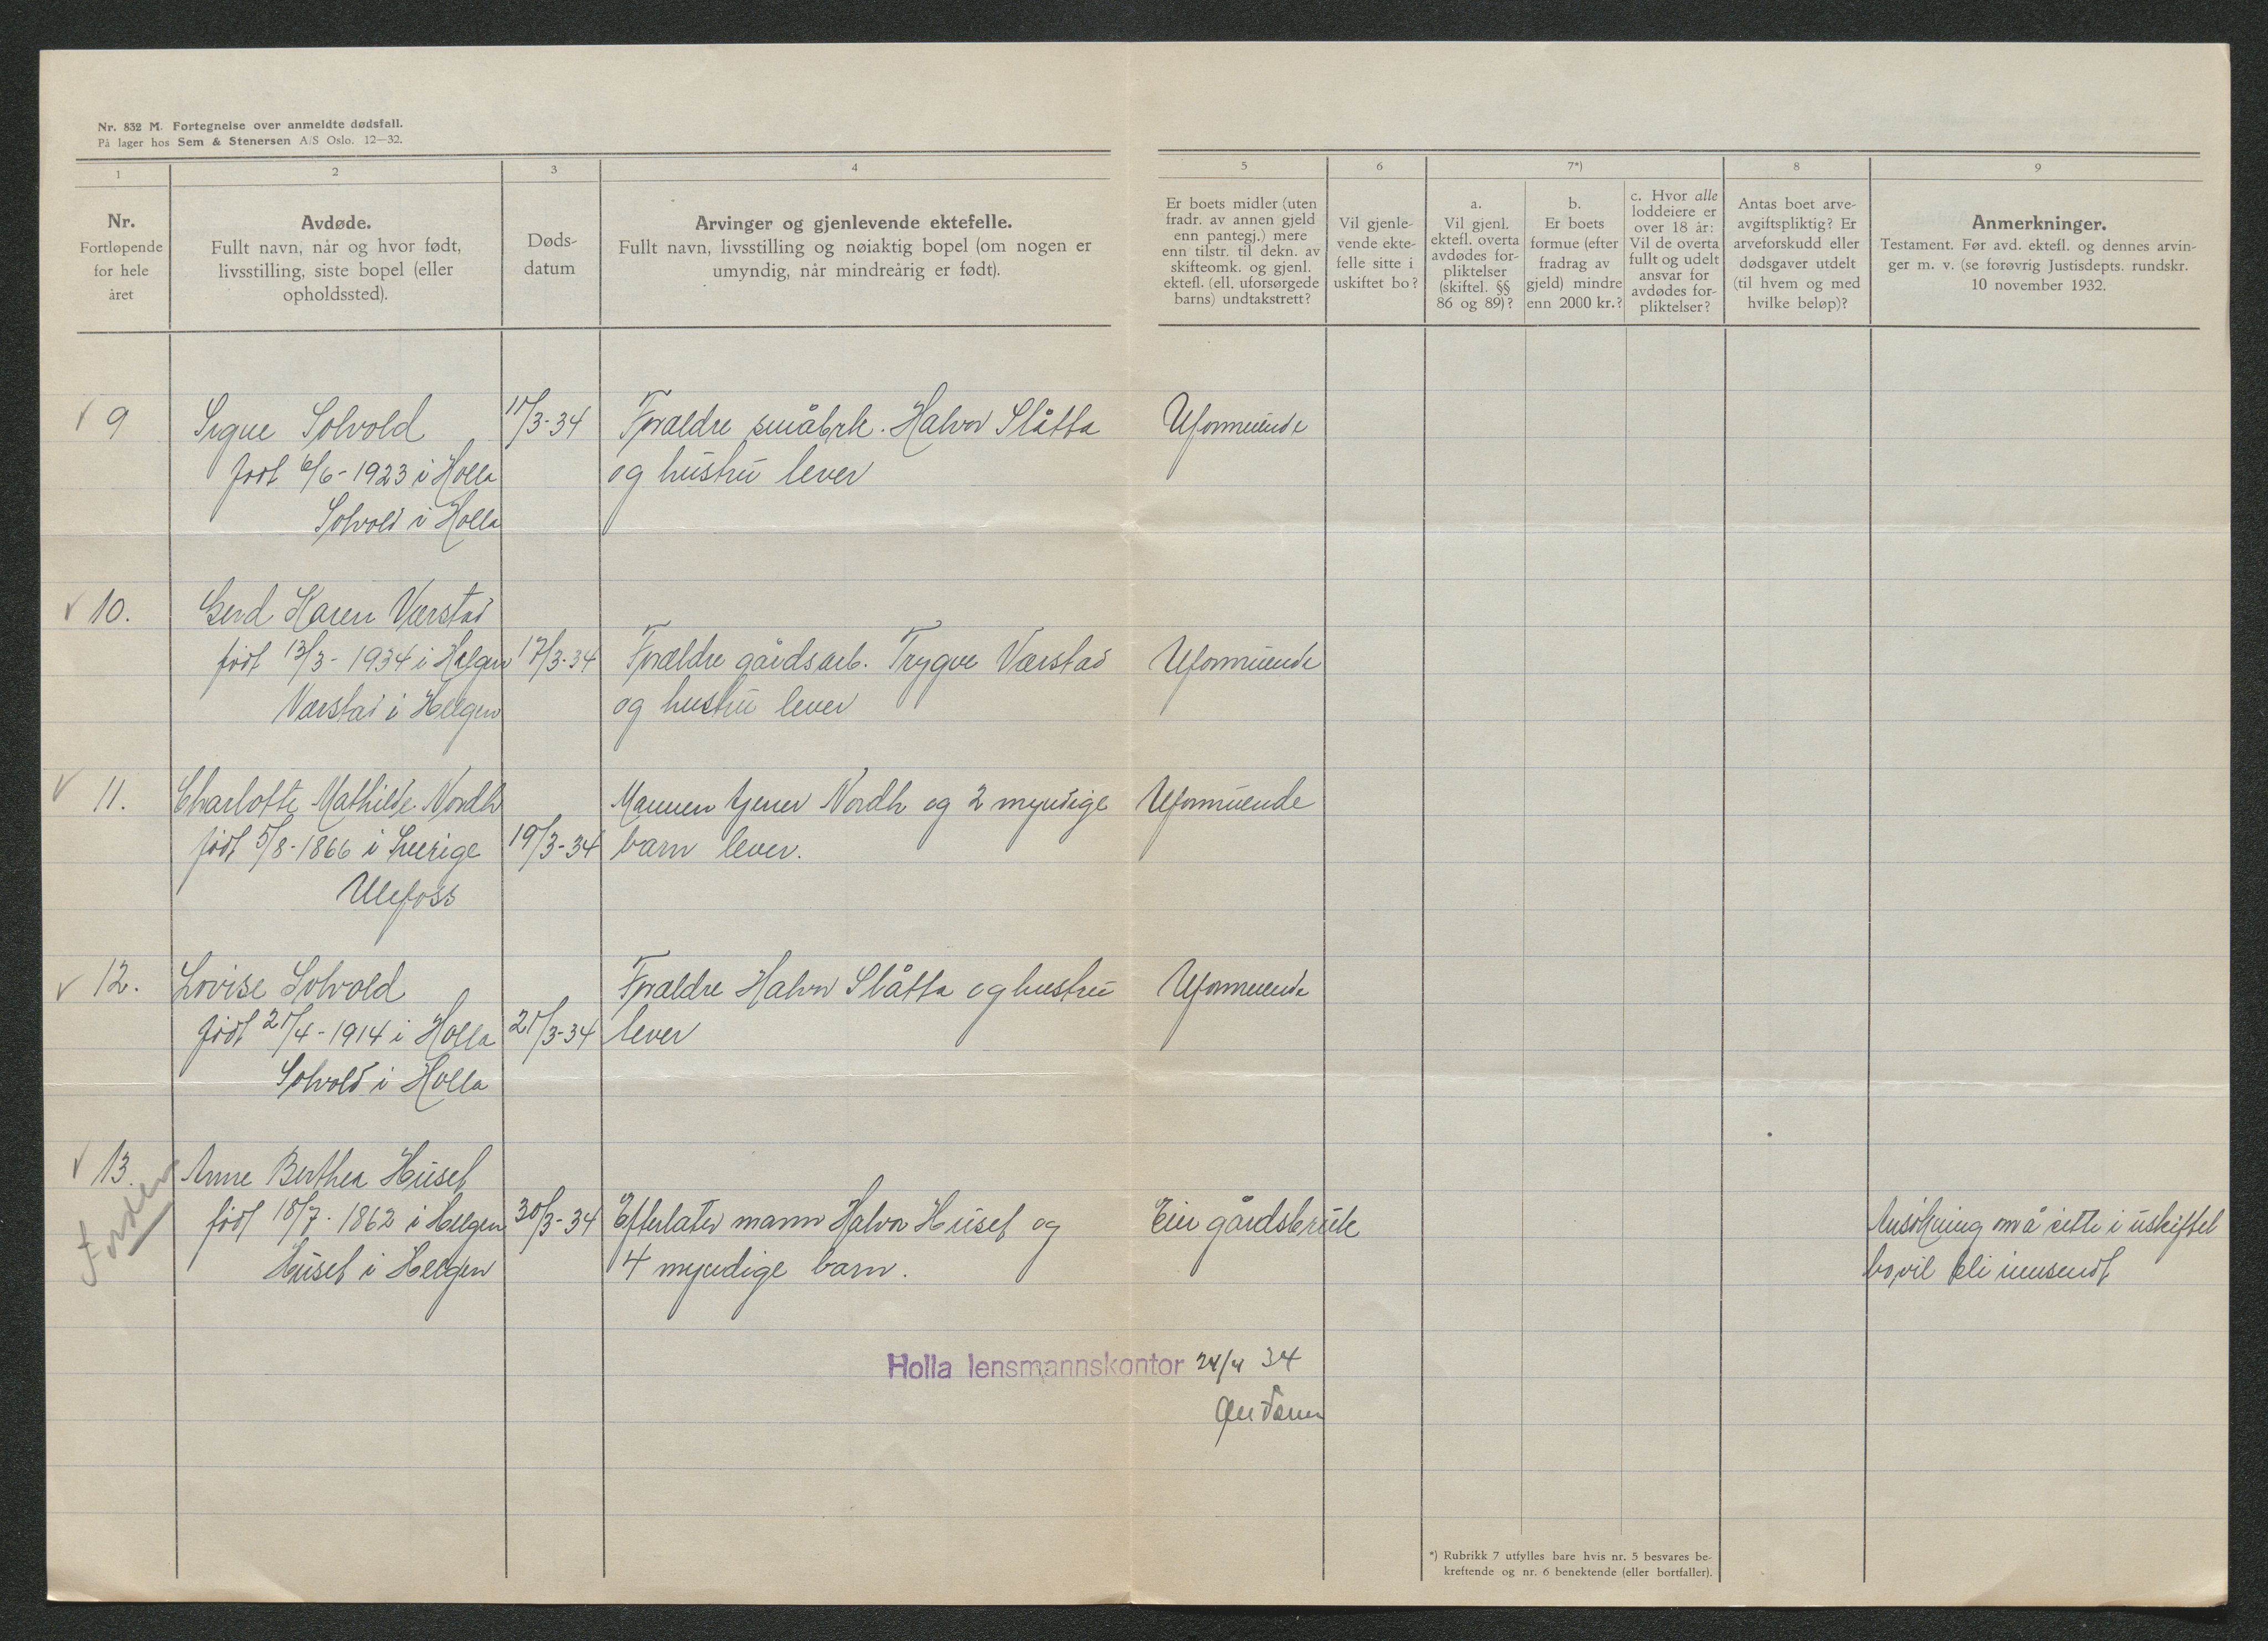 Nr. 832 M. Fortegnelse over anmeldte dødsfall.
På lager hos Sem & Stenersen A/S Oslo. 12—32.
1
2
3
4
5
6
7*)
8
9
Nr.
Fortløpende
for hele
året
Avdøde.
Fullt navn, når og hvor født,
livsstilling, siste bopel (eller
opholdssted).
Døds-
datum
Arvinger og gjenlevende ektefelle.
Fullt navn, livsstilling og nøiaktig bopel (om nogen er
umyndig, når mindreårig er født).
Er boets midler (uten
fradr. av annen gjeld
enn pantegj.) mere
enn tilstr. til dekn. av
skifteomk. og gjenl.
ektefl. (ell. uforsørgede
barns) undtakstrett?
Vil gjenle-
vende ekte-
felle sitte i
uskiftet bo?
a.
Vil gjenl.
ektefl. overta
avdødes for-
pliktelser
(skiftel. §§
86 og 89)?
b.
Er boets
formue (efter
fradrag av
gjeld) mindre
enn 2000 kr.?
c. Hvor alle
loddeiere er
over 18 år:
Vil de overta
fullt og udelt
ansvar for
avdødes for-
pliktelser?
Antas boet arve-
avgiftspliktig? Er
arveforskudd eller
dødsgaver utdelt
(til hvem og med
hvilke beløp)?
Anmerkninger.
Testament. Før avd. ektefl. og dennes arvin-
ger m. v. (se forøvrig Justisdepts. rundskr.
10 november 1932.
9 Signe Solvold 11/3-34 Foraldre småbrk. Halvor Slåtta Uformuende
født 6/6-1923 i Holla og hustru lever
Solvold i Holla
10. Gerd Karen Værstad
født 13/3-1934 i Helgen 17/3-34 Forældre gårdsarb. Trygve Værstad Uformuende
Værstad i Helgen og hustru lever
11. Charlotte Mathilde Nordh Mannen Nordh og 2 myndige Uformuende
født 5/8-1866 i Sverige 19/3-34 barn lever.
Ulefoss
12. Lovise Solvold Foraldre Halvor Slåtta og hustru Uformuende
født 21/4-1914 i Holla 21/3-34 lever
Solvold i Holla
13. Anne Berthea Huset
født 18/7-1862 i Helgen 30/3-34 Efterlater mann Halvor Huset og Ein gårdsbruk Ansökning om å sitte i uskiftet
Huset i Helgen 4 myndige barn. bo, vil bli innsendt
Holla lensmannskontor 24/4 34
*) Rubrikk 7 utfylles bare hvis nr. 5 besvares be-
kreftende og nr. 6 benektende (eller bortfaller).